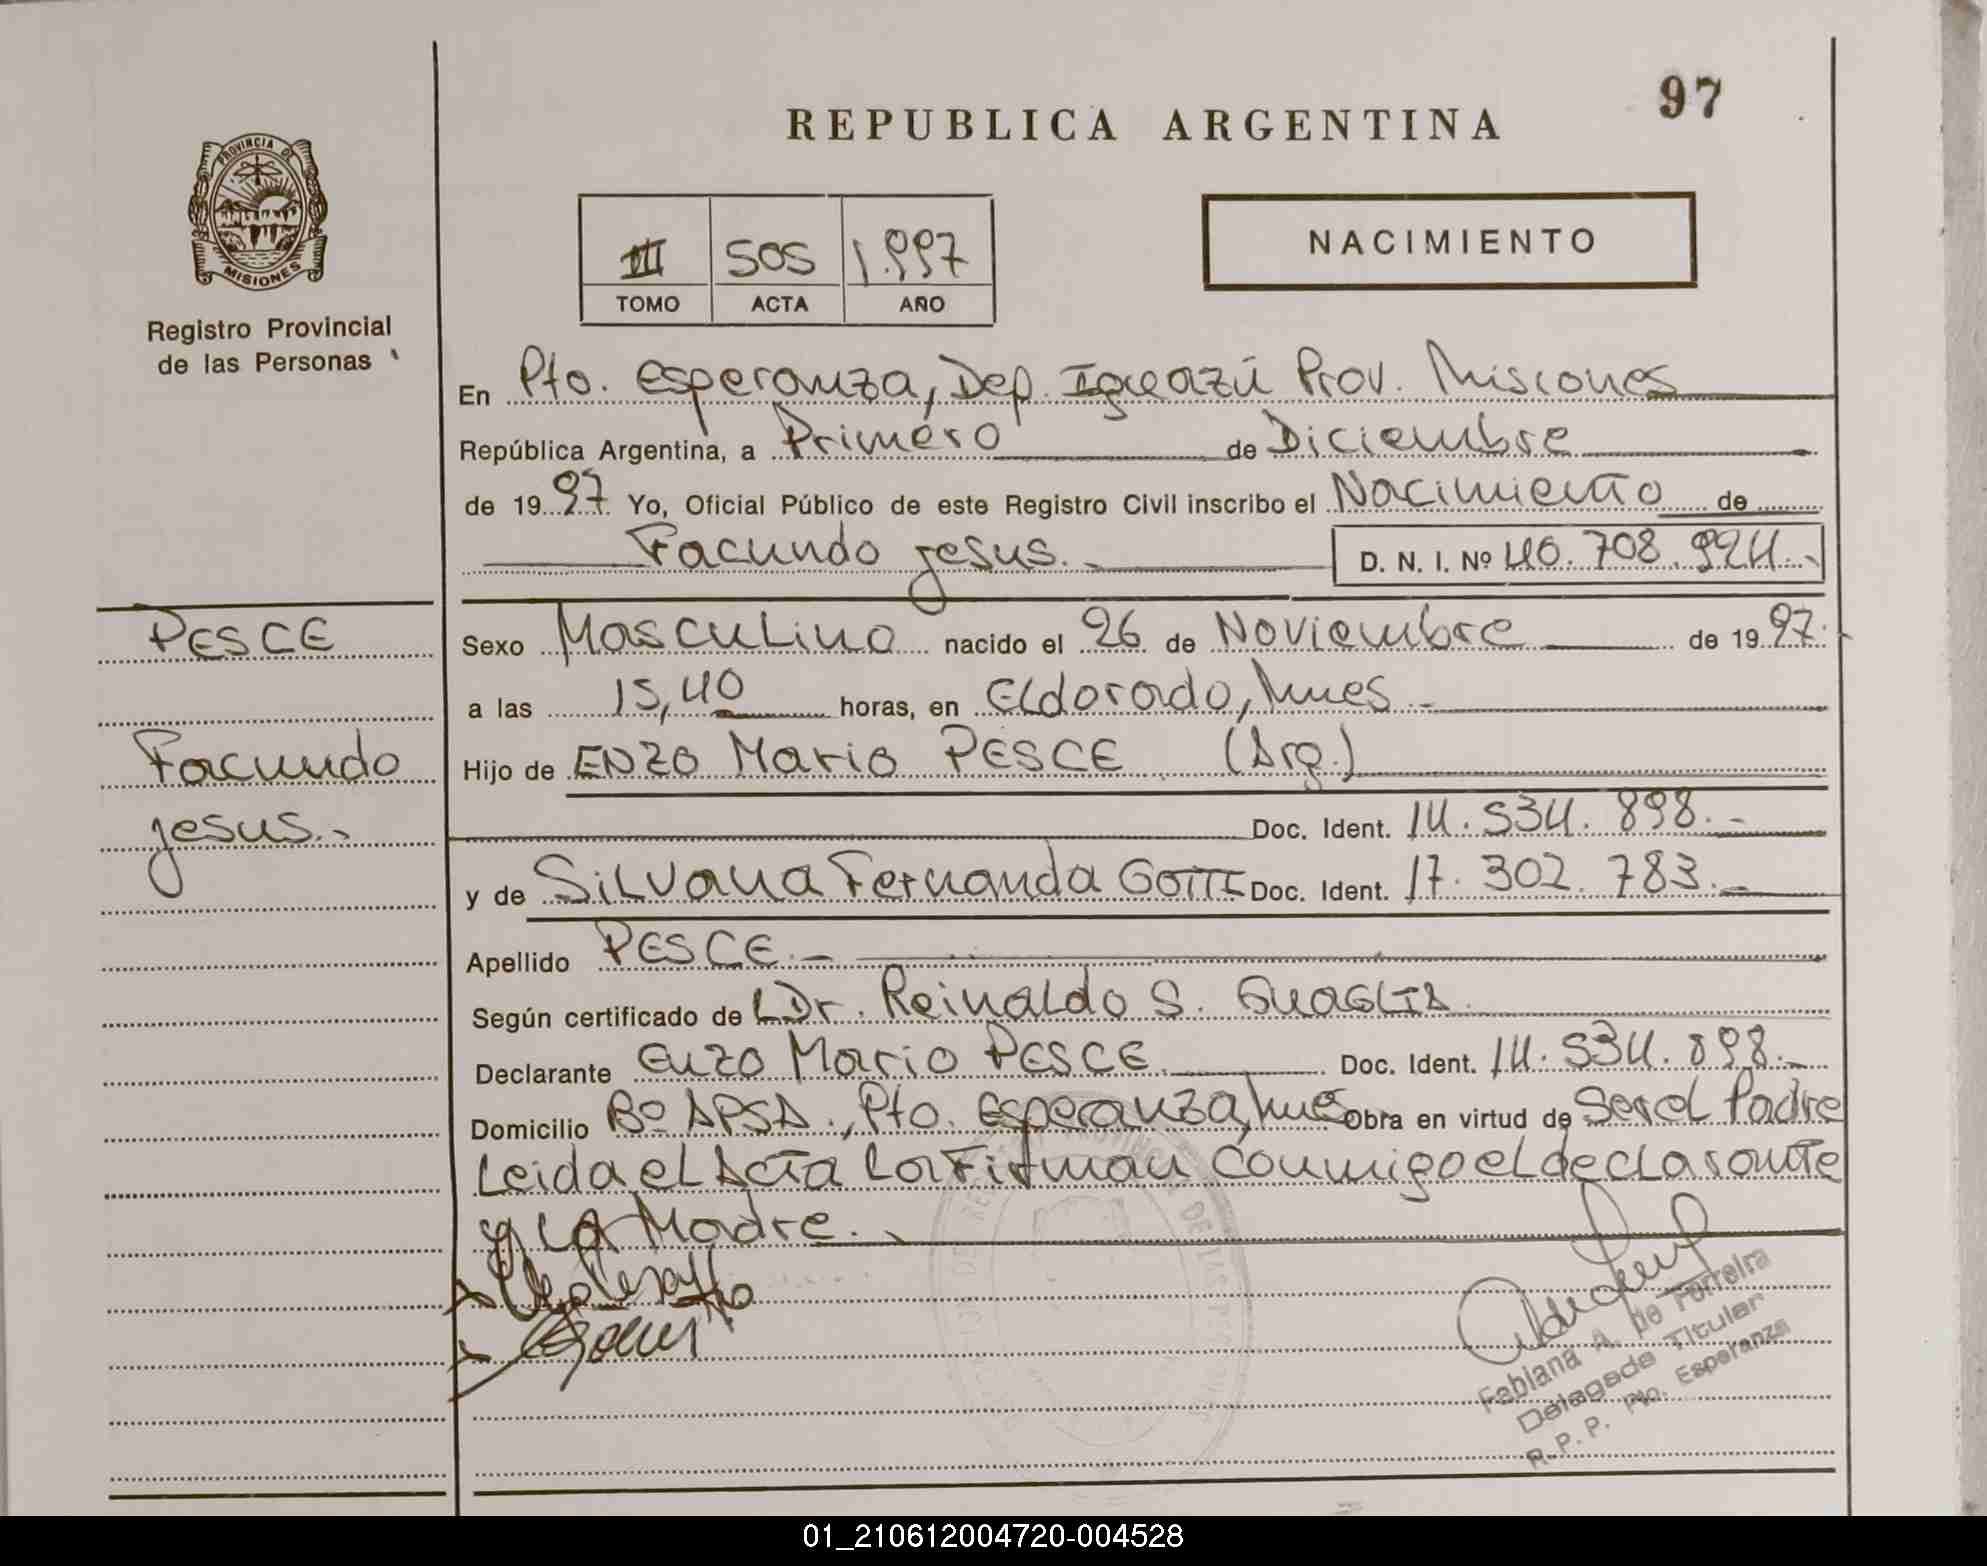 97
REPUBLICA ARGENTINA
PROVINCIA DE
MISIONES
Registro Provincial
de las Personas
III 505 1.997
TOMO ACTA AÑO
NACIMIENTO
En Pto. Esperanza, Dep. Iguazú Prov. Misiones
República Argentina, a Primero de Diciembre
de 1997. Yo, Oficial Público de este Registro Civil inscribo el Nacimiento de
Facundo Jesus.-
D. N. I. Nº 40.708.924.-
PESCE
Facundo
Jesus.-
Sexo Masculino nacido el 26 de Noviembre de 1997.
a las 15,40 horas, en Eldorado, Mnes.-
Hijo de ENZO Mario PESCE (Arg.)
Doc. Ident. 14.534.898.-
y de Silvana Fernanda GOTTI Doc. Ident. 17.302.783.-
Apellido PESCE.-
Según certificado de L Dr. Reinaldo S. GUAGLIA.
Declarante Enzo Mario PESCE Doc. Ident. 14.534.898.-
Domicilio Bº APSA., Pto. Esperanza, Mnes Obra en virtud de Ser el Padre
Leida el Acta La Firman Conmigo el declarante
y LA Madre.-
Fabiana A. de Ferreira
Delegada Titular
R. P. P. Pto. Esperanza
01_210612004720-004528